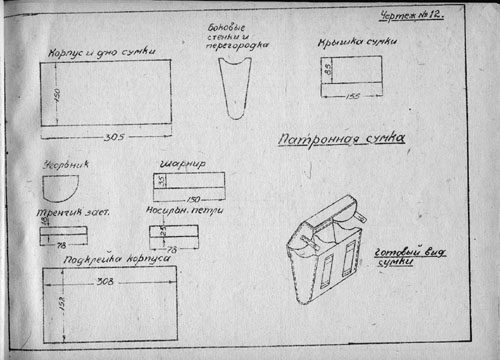 Чертеж № 12.
Корпус и дно сумки
150
305
Боковые
стенки и
перегородка
Крышка сумки
85
155
Патронная сумка
Усольник
Шарнир
35
150
Тренчик заст.
18
78
Носильн. петли
25
78
Подклейка корпуса
308
152
Готовый вид
сумки